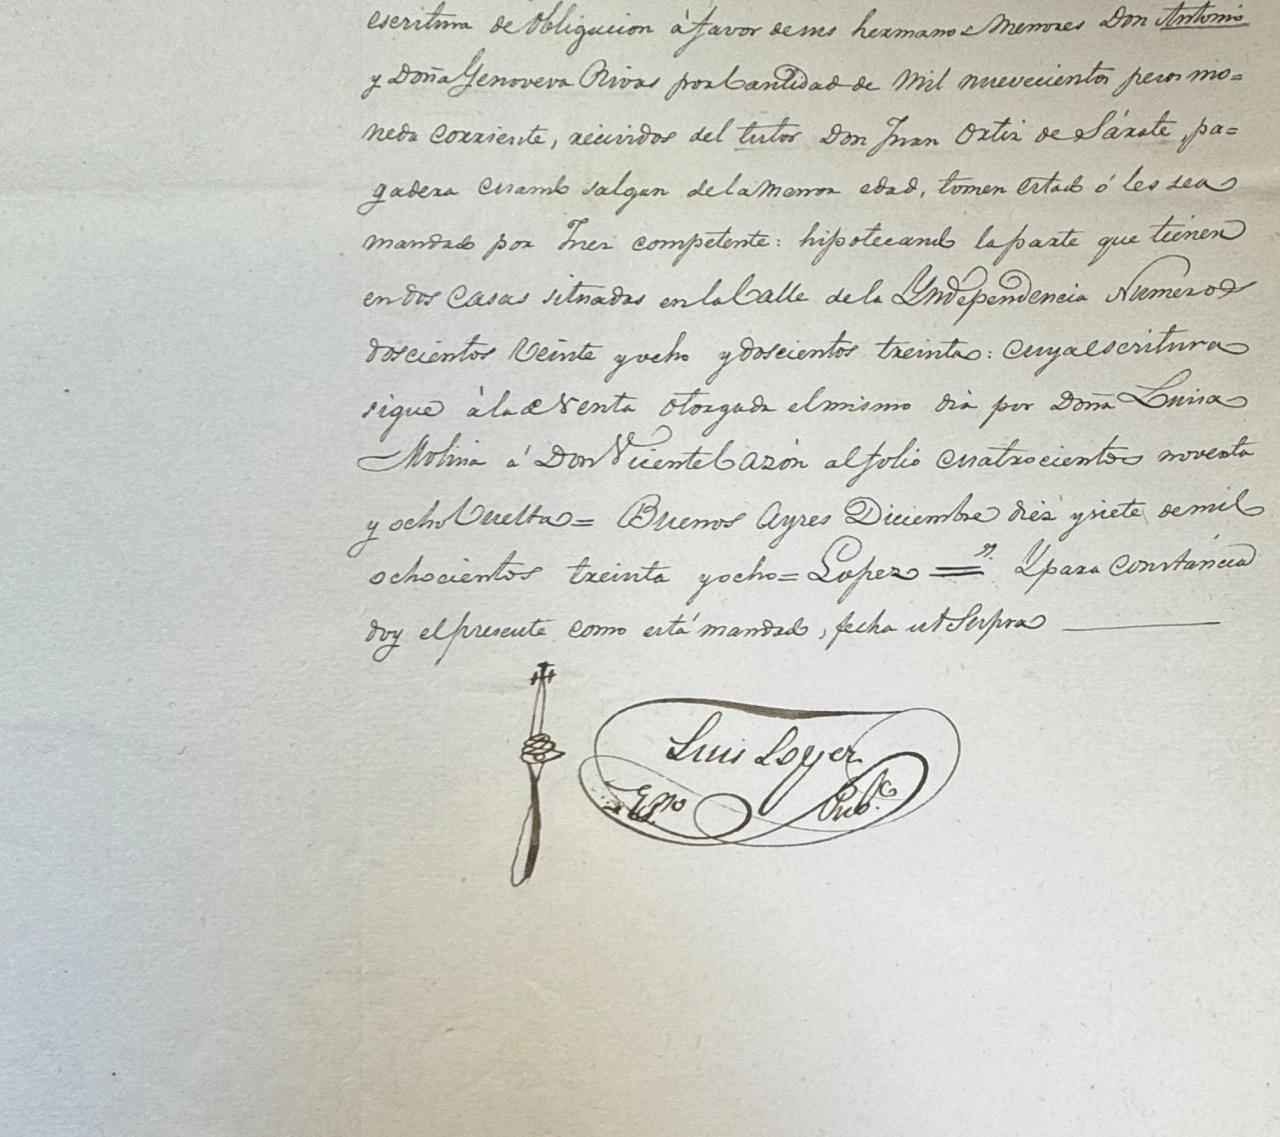 escritura de obligacion á favor de sus hermanos Menores Don Antonio
y Doña Genoveva Rivas por Cantidad de Mil nuevecientos pesos mo=
neda corriente, recividos del tutor Don Juan Ortiz de Sárate, pa=
gadera cuando salgan de la menor edad, tomen estado ó les sea
mandado por Juez competente: hipotecando la parte que tienen
en dos casas situadas en la Calle de la Yndependencia Numeros
doscientos Veinte y ocho y doscientos treinta: cuya escritura
sigue á la de Venta otorgada el mismo dia por Doña Luisa
Molina á Don Vicente Cazón al folio cuatrocientos noventa
y ocho Vuelta= Buenos Ayres Diciembre diez y siete de mil
ochocientos treinta y ocho= Lopez = Y para constancia
doy el presente como está mandado, fecha ut Supra
Luis Loyer
Esno Pubco